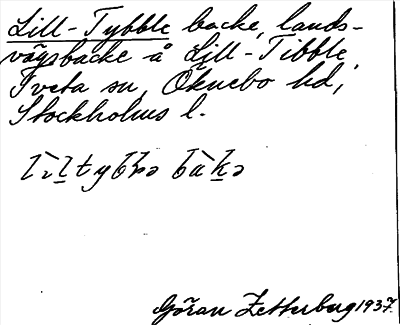 Lill-Tybble backe, lands-
vägsbacke å Lill-Tibble,
Tveta sn, Öknebo hd,
Stockholms l.
Göran Zetterberg 1937.